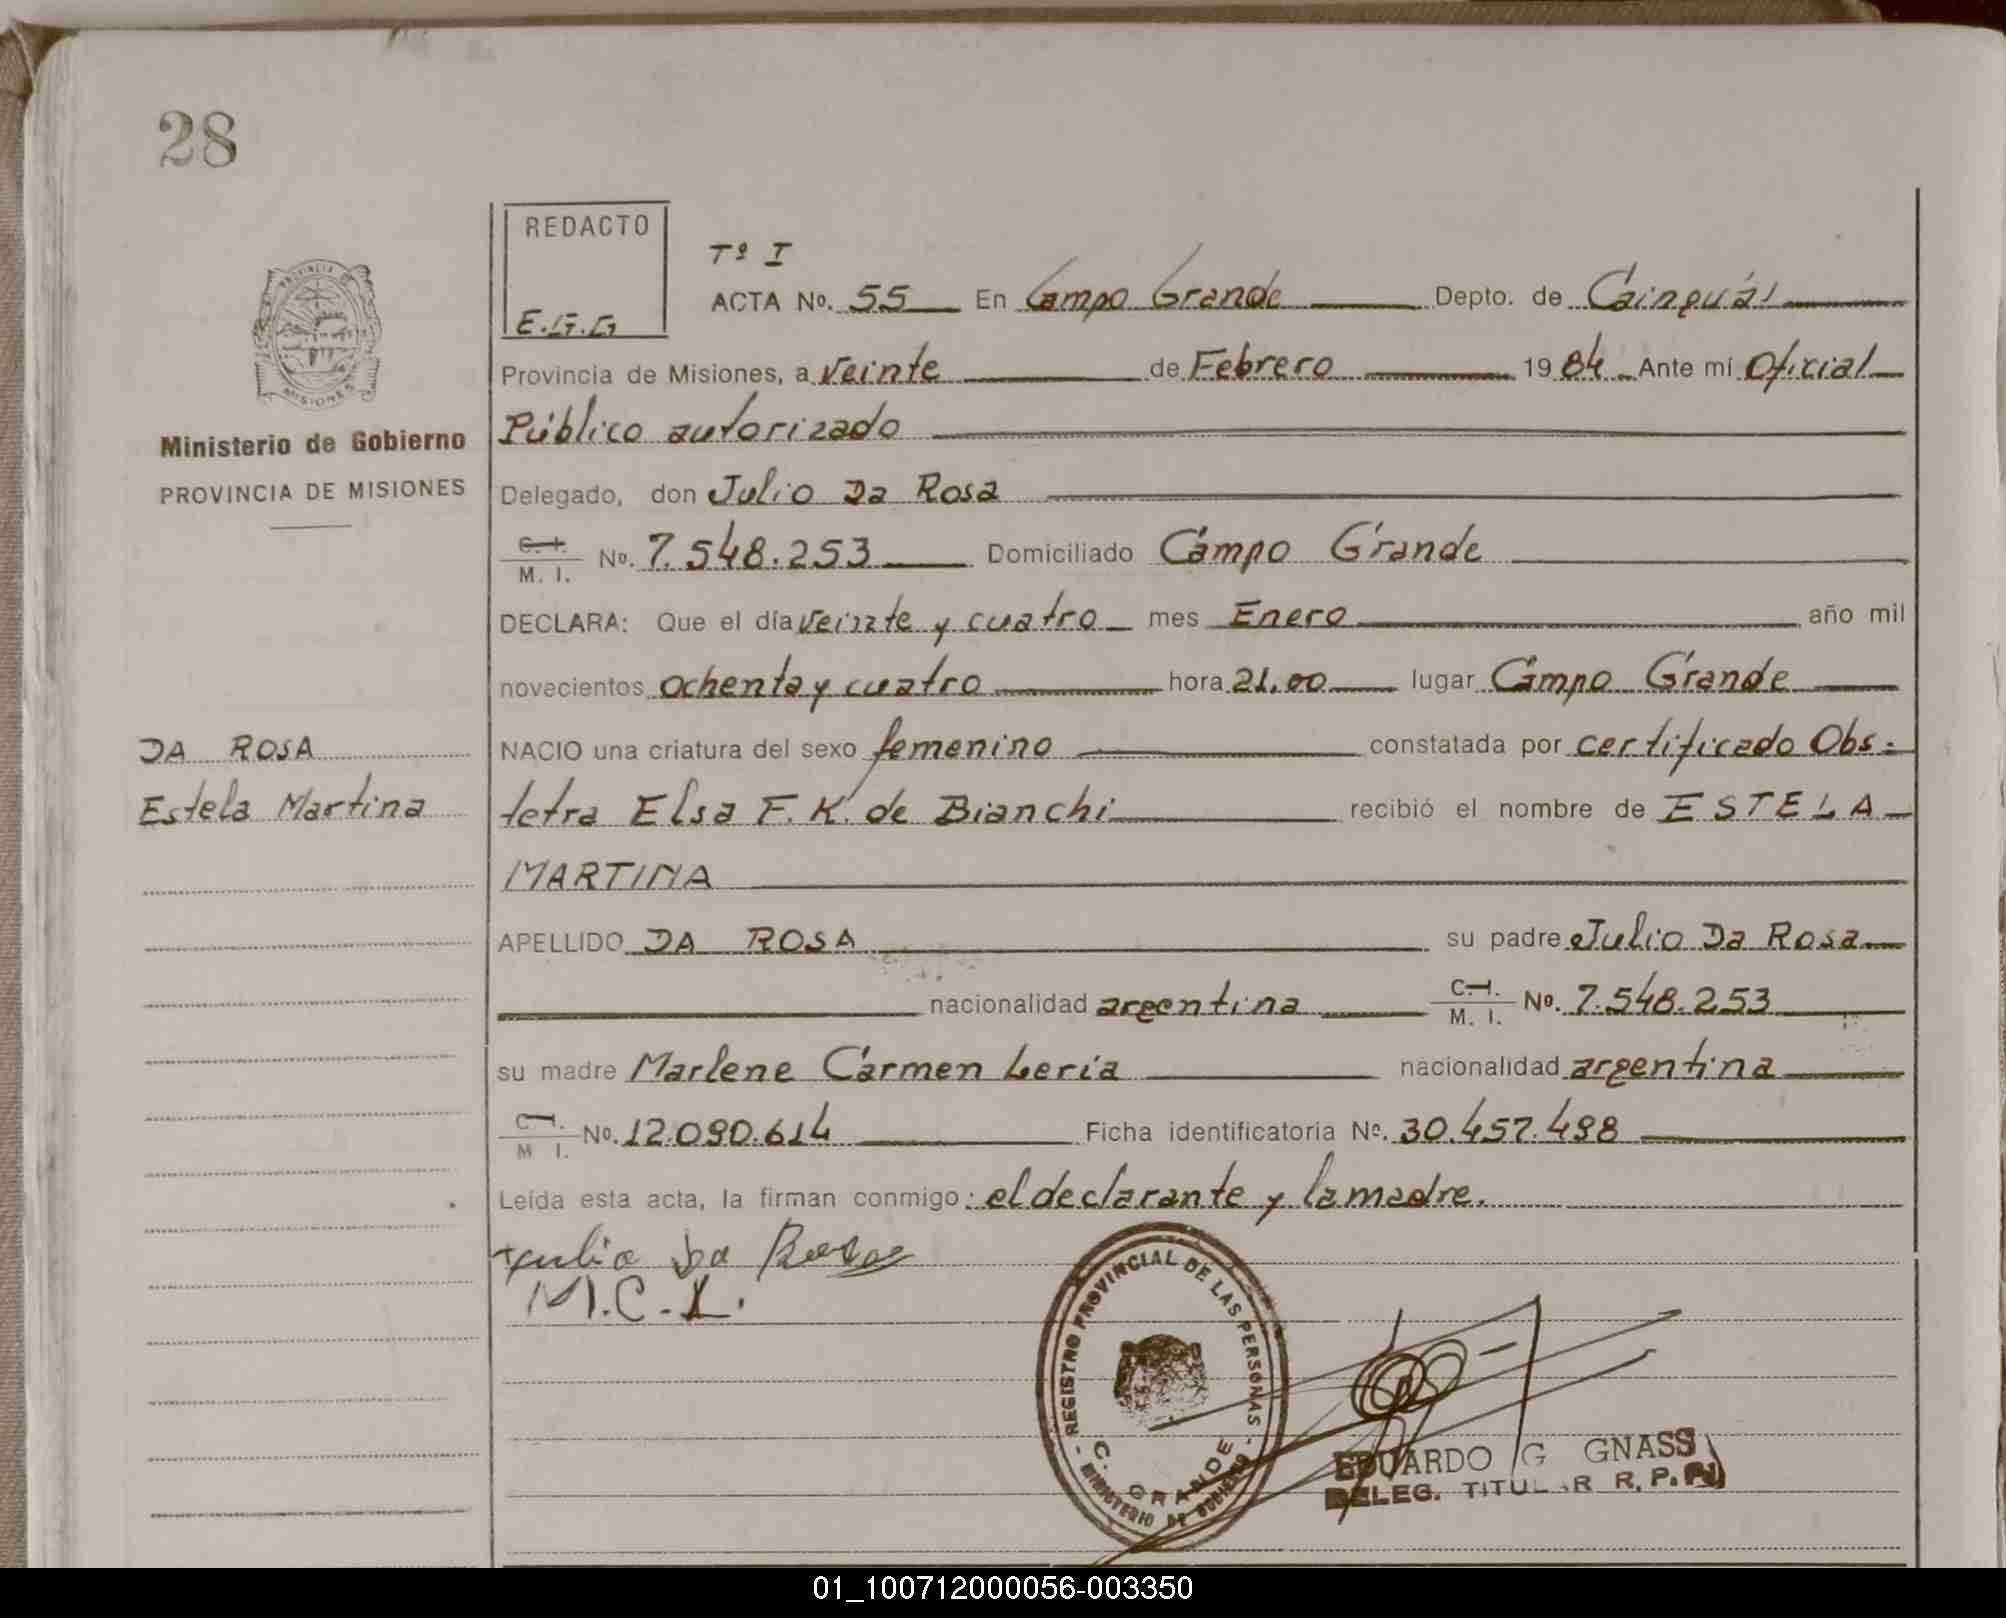 28
REDACTO
E.G.G
Tº I
ACTA No. 55 En Campo Grande Depto. de Cainguás
Provincia de Misiones, a veinte de Febrero 1984 Ante mí Oficial
Público autorizado
Ministerio de Gobierno
PROVINCIA DE MISIONES
Delegado, don Julio Da Rosa
C. I. M. I. No. 7.548.253 Domiciliado Campo Grande
DECLARA: Que el día veinte y cuatro mes Enero año mil
novecientos ochenta y cuatro hora 21,00 lugar Campo Grande
DA ROSA
Estela Martina
NACIO una criatura del sexo femenino constatada por certificado Obs-
tetra Elsa F. K. de Bianchi recibió el nombre de ESTELA
MARTINA
APELLIDO DA ROSA su padre Julio Da Rosa
nacionalidad argentina C. I. M. I. No. 7.548.253
su madre Marlene Carmen Leria nacionalidad argentina
C. I. M I. No. 12.090.614 Ficha identificatoria No. 30.457.498
Leída esta acta, la firman conmigo: el declarante y la madre.
Julio Da Rosa
M.C.L.
REGISTRO PROVINCIAL DE LAS PERSONAS
C. GRANDE
MINISTERIO DE GOBIERNO
EDUARDO G GNASS
DELEG. TITULAR R. P. P.
01_100712000056-003350